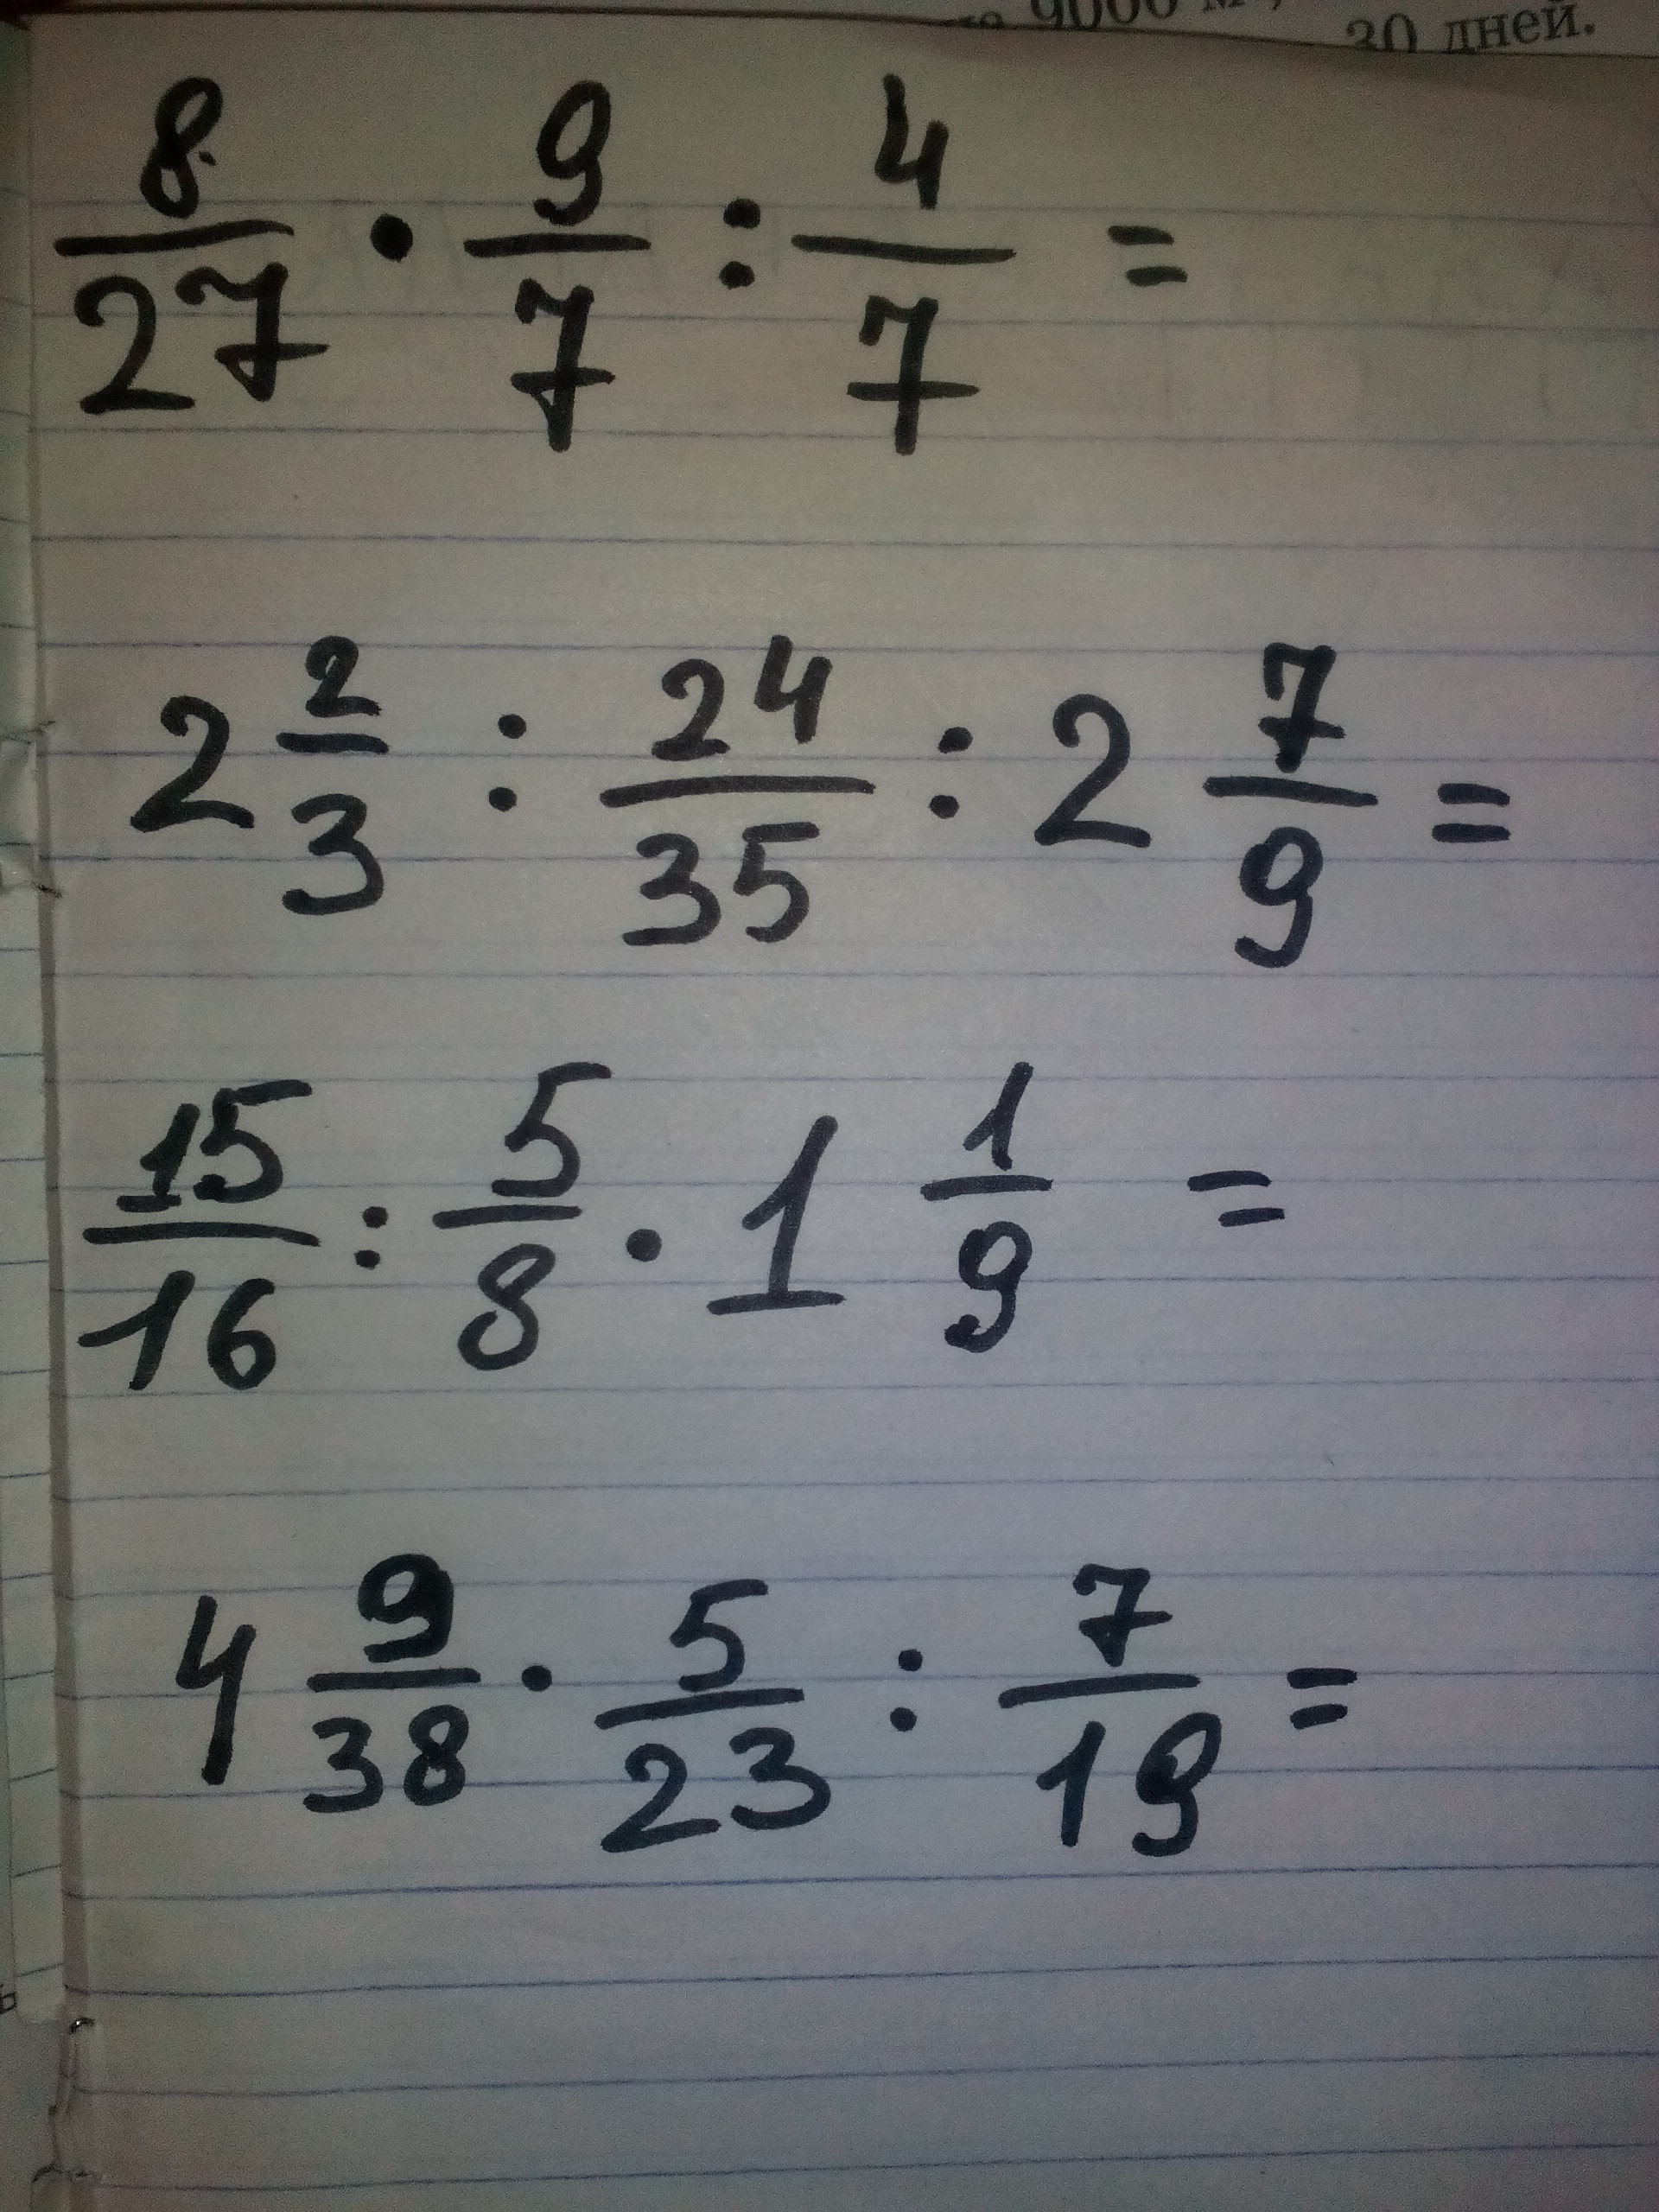 9000 м
30 дней.
8/27 · 9/7 : 4/7 =
2 2/3 : 24/35 : 2 7/9 =
15/16 : 5/8 · 1 1/9 =
4 9/38 · 5/23 : 7/19 =